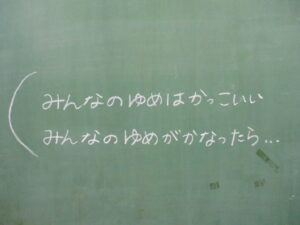 (みんなのゆめはかっこいい
みんなのゆめがかなったら...